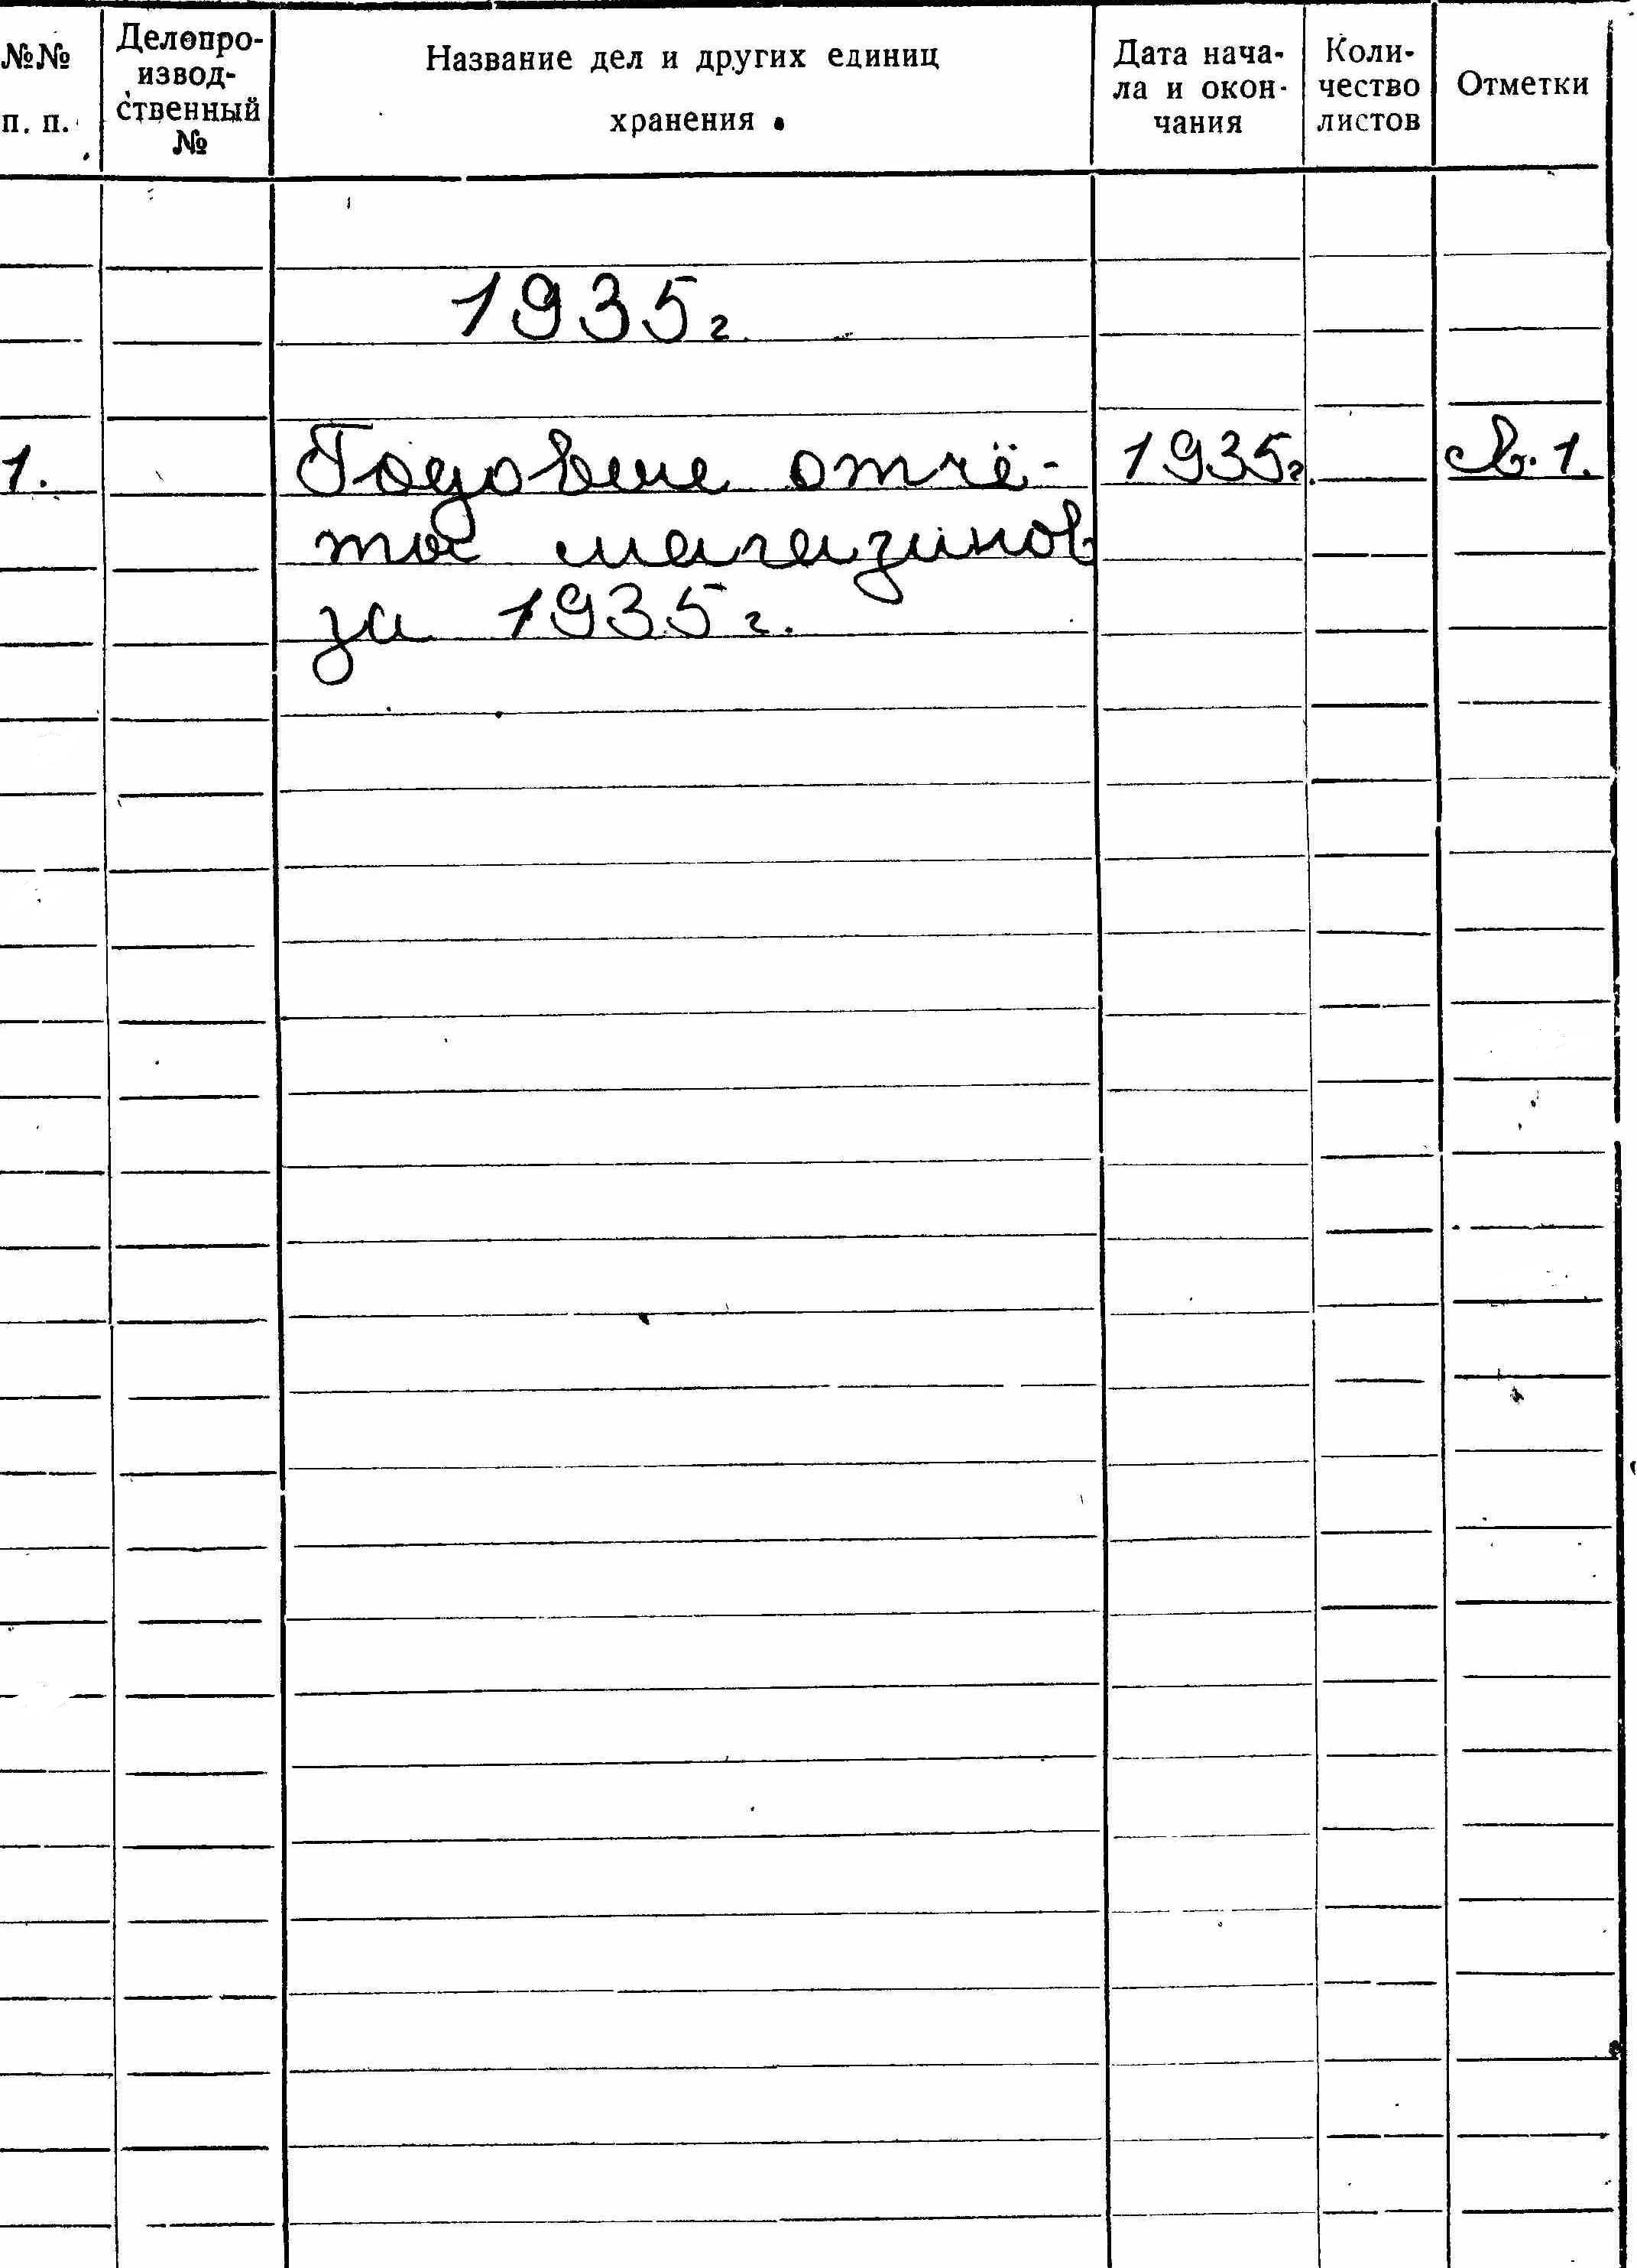 №№ п. п.
Делопро-
извод-
ственный
№
Название дел и других единиц
хранения
Дата нача-
ла и окон-
чания
Коли-
чество
листов
Отметки
1935г.
1. Годовые отчё- 1935г. св. 1.
ты магазинов
за 1935г.